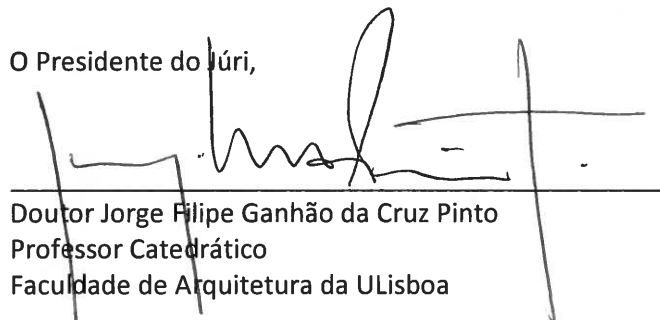 O Presidente do Júri,
Doutor Jorge Filipe Ganhão da Cruz Pinto
Professor Catedrático
Faculdade de Arquitetura da ULisboa